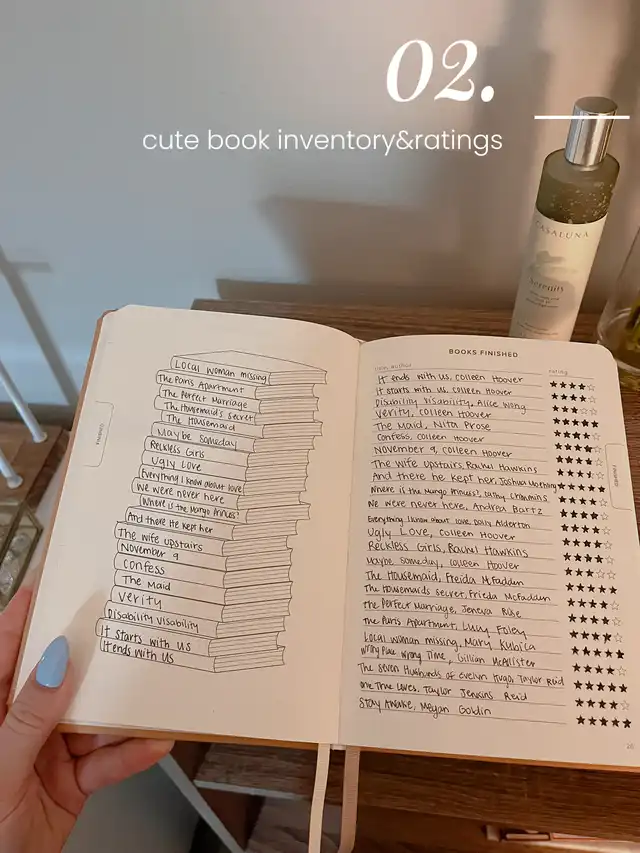 02.
cute book inventory&ratings
CASALUNA
Serenity
Local woman missing
The Paris Apartment
The Perfect Marriage
The Housemaid's secret
The Housemaid
Maybe Someday
Reckless Girls
Ugly Love
Everything I know about love
We were never here
Where is the Mango Princess?
And there He Kept her
The wife upstairs
November 9
Confess
The Maid
Verity
Disability Visability
It Starts with us
It ends with us
BOOKS FINISHED
rating
It ends with us, Colleen Hoover ★★★★☆
It starts with us, Colleen Hoover ★★★★☆
Disability Visability, Alice Wong ★★★☆☆
Verity, Colleen Hoover ★★★★★
The Maid, Nita Prose
Confess, Colleen Hoover
November 9, Colleen Hoover
The wife upstairs, Rachel Hawkins
And there he Kept her, Joshua Moehling
Where is the Mango Princess?, Cathy Crimmins
We were never here, Andrea Bartz
Everything I Know about love, Dolly Alderton
Ugly Love, Colleen Hoover
Reckless Girls, Rachel Hawkins
Maybe Someday, Colleen Hoover
The Housemaid, Freida McFadden
The Housemaids secret, Frieda McFadden
The Perfect Marriage, Jeneva Rose
The Paris Apartment, Lucy Foley
Local woman missing, Mary Kubica
Wrong Place Wrong Time, Gillian McAllister
The Seven Husbands of Evelyn Hugo, Taylor Reid
One True Loves, Taylor Jenkins Reid
Stay Awake, Megan Goldin